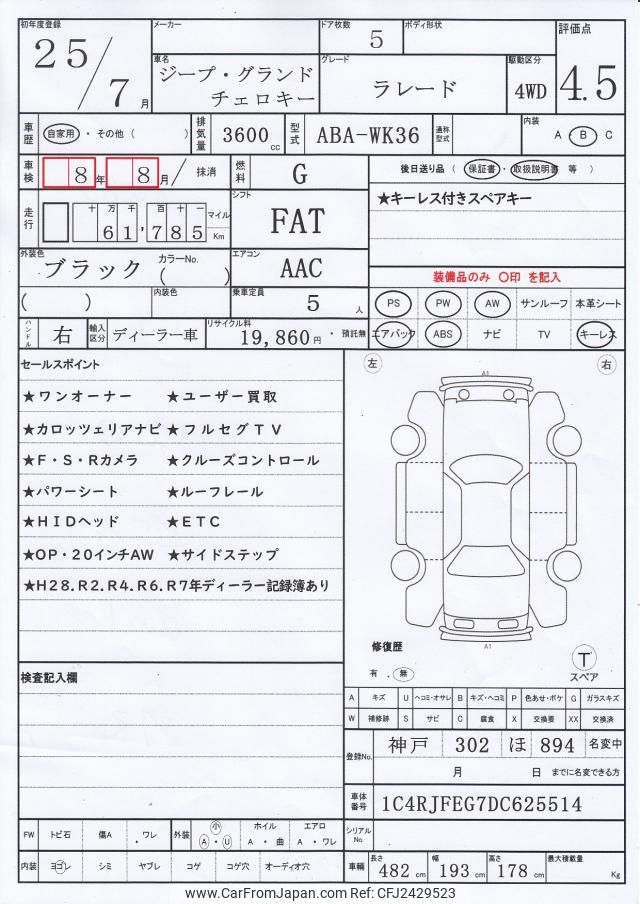 初年度登録
25/7月
メーカー
ドア枚数
5
ボディ形状
車名
ジープ・グランド
チェロキー
グレード
ラレード
駆動区分
4WD
評価点
4.5
車歴
自家用・その他( )
排気量
3600cc
型式
ABA-WK36
通称型式
内装
A・B・C
車検
8年8月/抹消
燃料
G
後日送り品(保証書・取扱説明書 等)
★キーレス付きスペアキー
走行
十万千百十一
61,785
マイル
Km
シフト
FAT
外装色
ブラック
カラーNo.
( )
エアコン
AAC
装備品のみ 〇印 を記入
( )
内装色
乗車定員
5人
PS PW AW サンルーフ 本革シート
エアバック ABS ナビ TV キーレス
ハンドル
右
輸入区分
ディーラー車
リサイクル料
19,860円・預託無
セールスポイント
★ワンオーナー ★ユーザー買取
★カロッツェリアナビ ★フルセグTV
★F・S・Rカメラ ★クルーズコントロール
★パワーシート ★ルーフレール
★HIDヘッド ★ETC
★OP・20インチAW ★サイドステップ
★H28.R2.R4.R6.R7年ディーラー記録簿あり
左
右
A1
A1
修復歴
有・無
T
スペア
検査記入欄
A キズ U ヘコミ・オサレ B キズ・ヘコミ P 色あせ・ボケ G ガラスキズ
W 補修跡 S サビ C 腐食 X 交換要 XX 交換済
登録No.
神戸 302 ほ 894 名変中
月 日 までに名変できる方
車体番号
1C4RJFEG7DC625514
シリアルNo.
FW トビ石 傷A ・ワレ
外装 小 A・U ホイル A・曲 エアロ A・ワレ
内装 ヨゴレ シミ ヤブレ コゲ コゲ穴 オーディオ穴
車輌
長さ 482cm 幅 193cm 高さ 178cm 最大積載量 Kg
www.CarFromJapan.com Ref: CFJ2429523